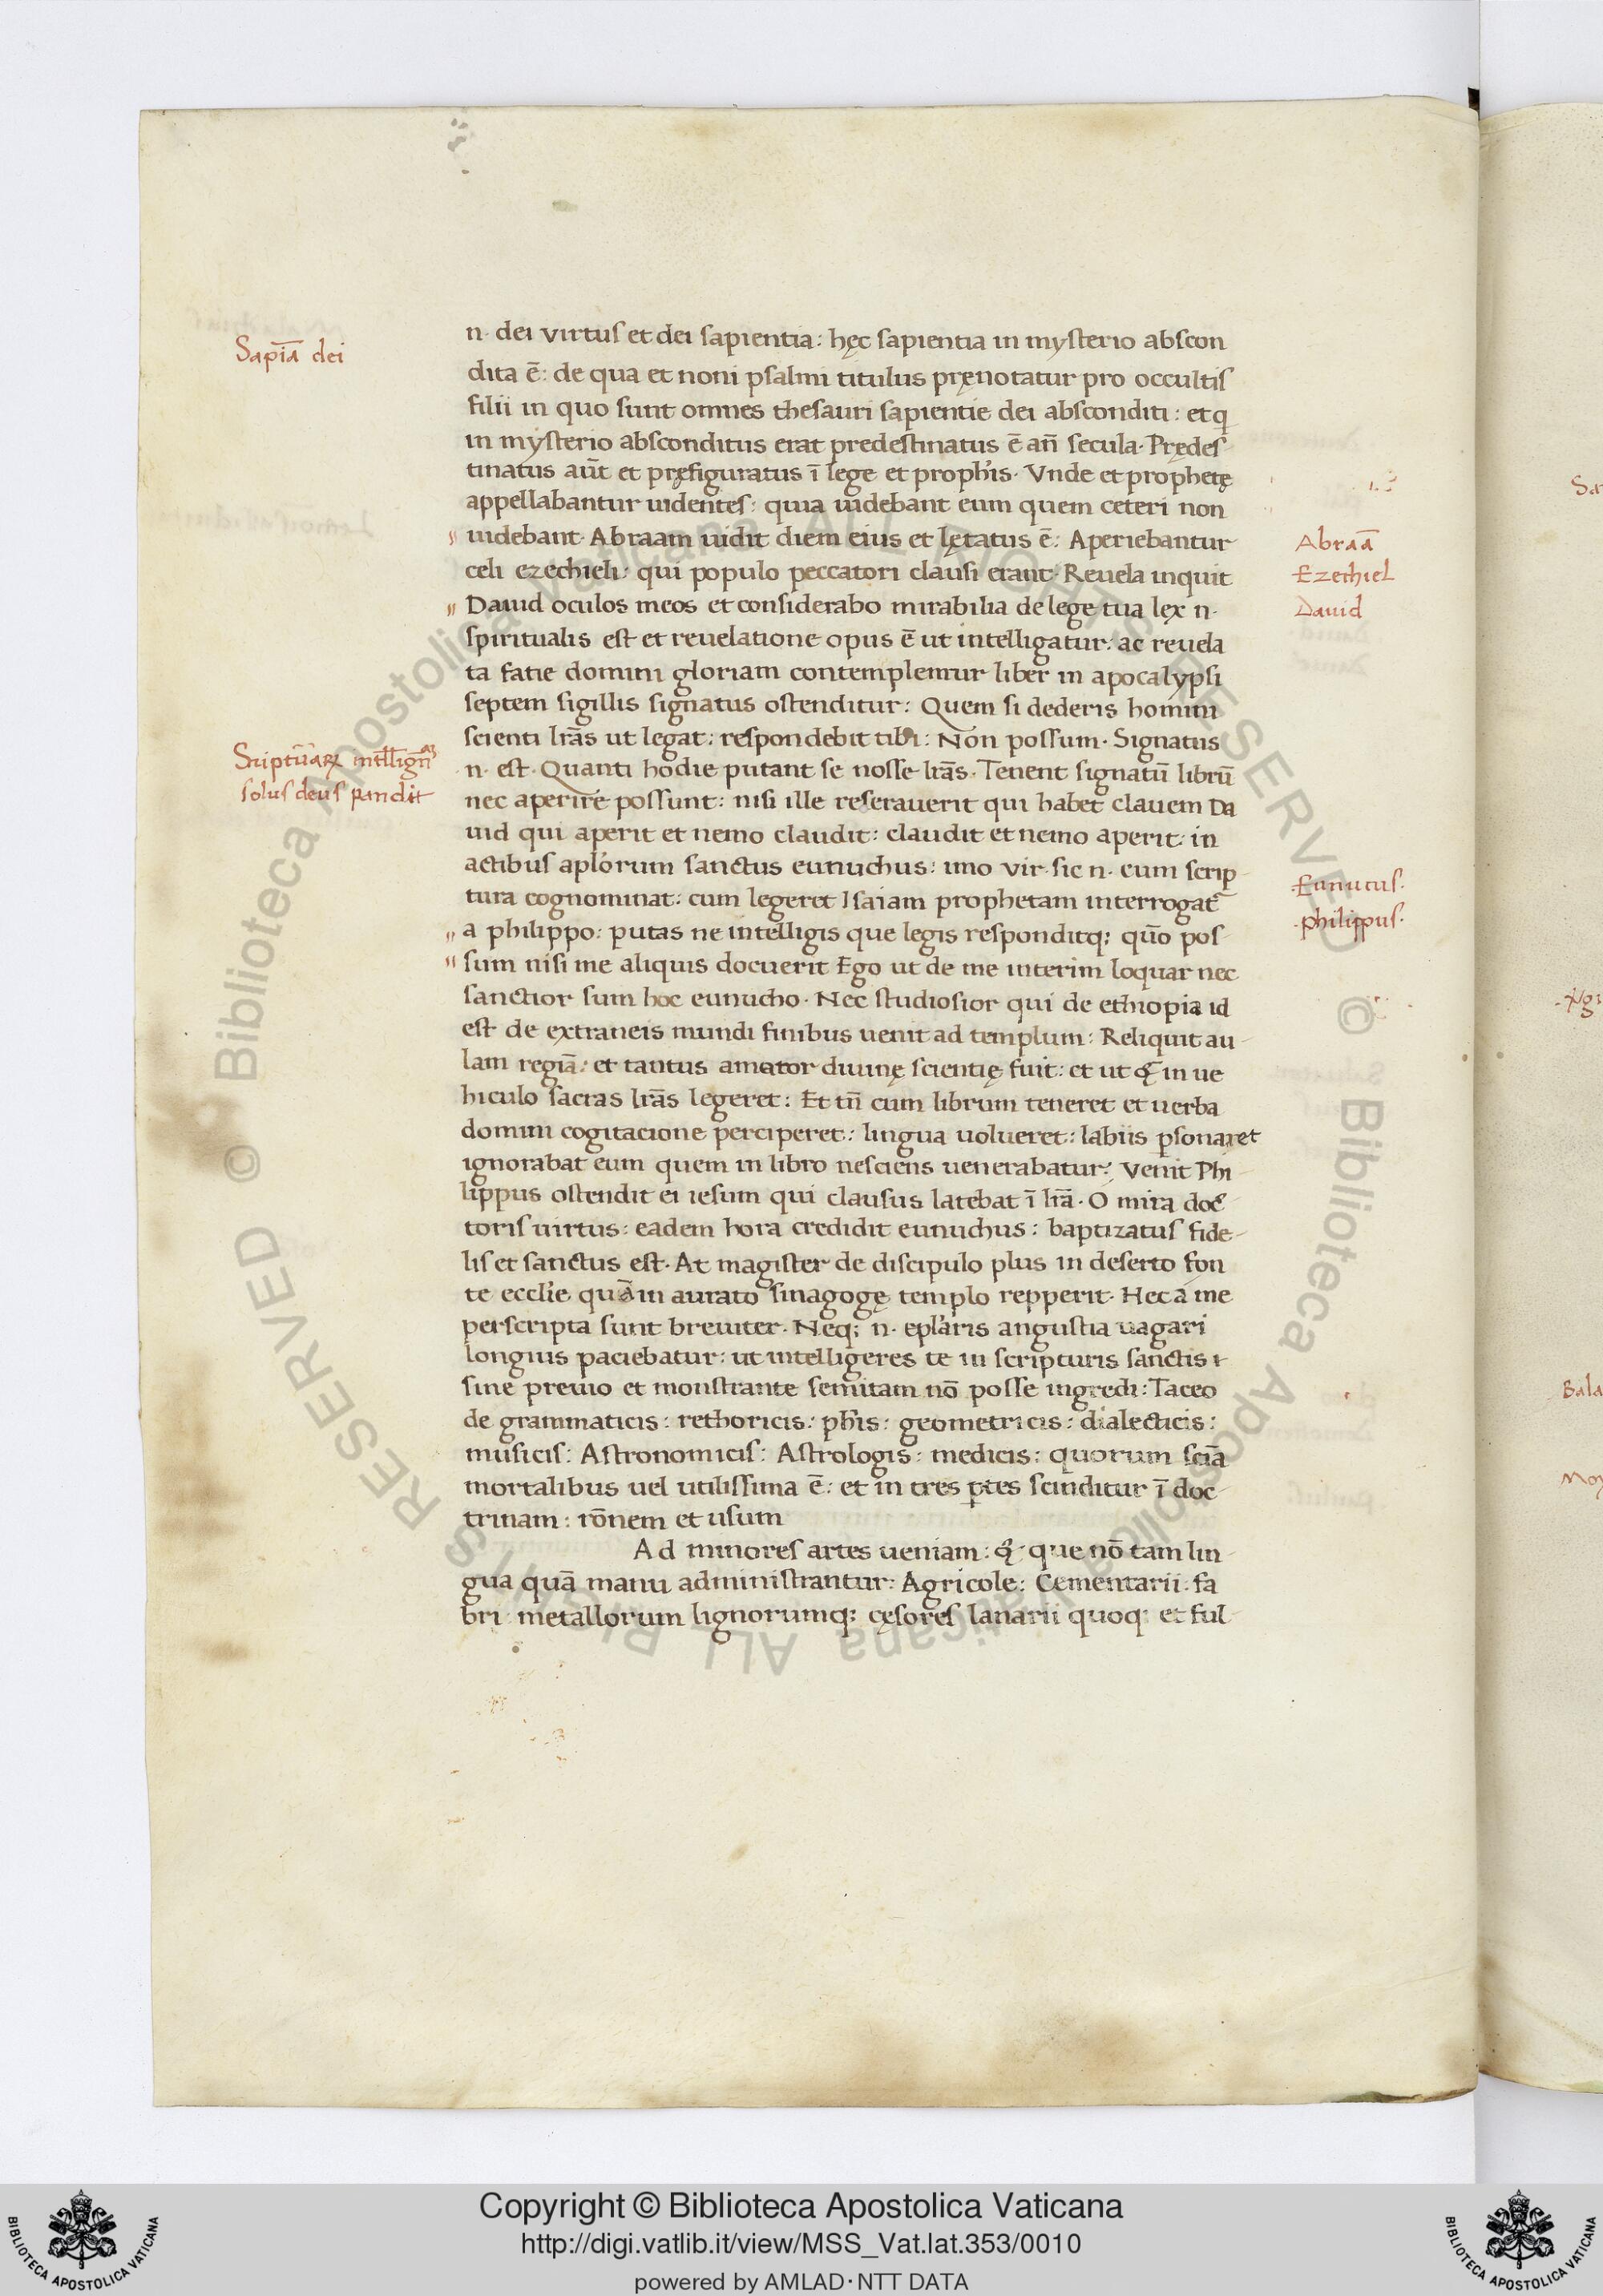 Sapīa dei
n· dei virtus et dei sapientia: hęc sapientia in mysterio abscon
dita ē: de qua et noni psalmi titulus pręnotatur pro occultis
filii in quo sunt omnes thesauri sapientie dei absconditi: et q
in mysterio absconditus erat predestinatus ē an̄ secula· Prędes
tinatus aūt et pręfiguratus ī lege et proph'is· Vnde et prophetę
appellabantur uidentes: quia uidebant eum quem ceteri non
uidebant· Abraam uidit diem eius et lętatus ē: Aperiebantur
celi ezechieli: qui populo peccatori clausi erant· Reuela inquit
Dauid oculos meos et considerabo mirabilia de lege tua lęx n·
spiritualis est et reuelatione opus ē ut intelligatur: ac reuela
ta fatie domini gloriam contemplemur liber in apocalypsi
septem sigillis signatus ostenditur: Quem si dederis homini
scienti lrās ut legat: respondebit tibi: Non possum· Signatus
n· est· Quanti hodie putant se nosse lrās· Tenent signatū librū
nec aperire possunt: nisi ille reserauerit qui habet clauem Da
uid qui aperit et nemo claudit: claudit et nemo aperit: in
actibus aplorum sanctus eunuchus: imo vir· sic n· eum scrip
tura cognominat: cum legeret Isaiam prophetam interrogat
a philippo: putas ne intelligis que legis responditq; quō pos
sum nisi me aliquis docuerit Ego ut de me interim loquar nec
sanctior sum hoc eunucho· Nec studiosior qui de ethiopia id
est de extraneis mundi finibus uenit ad templum: Reliquit au
lam regiā: et tantus amator diuinę scientię fuit: et ut in ue
hiculo sacras lrās legeret: Et tn̄ cum librum teneret et uerba
domini cogitacione perciperet: lingua uolueret: labiis psonaret
ignorabat eum quem in libro nesciens uenerabatur: Venit Phi
lippus ostendit ei iesum qui clausus latebat ī lrā· O mira doc
toris uirtus: eadem hora credidit eunuchus: baptizatus fide
lis et sanctus est· At magister de discipulo plus in deserto fon
te eccl'ie quā in aurato sinagogę templo repperit· Hec a me
perscripta sunt breuiter· Neq; n· epl'aris angustia uagari
longius paciebatur: ut intelligeres te in scripturis sanctis
sine preuio et monstrante semitam nō posse ingredi: Taceo
de grammaticis: rethoricis: ph'is: geometricis: dialecticis:
musicis: Astronomicis: Astrologis: medicis: quorum scīa
mortalibus uel utilissima ē: et in tres ptes scinditur ī doc
trinam: rōnem et usum
Ad minores artes ueniam: que nō tam lin
gua quā manu administrantur: Agricole: Cementarii: fa
bri metallorum lignorumq; cęsores lanarii quoq; et ful
Abraā
Ezechiel
Dauid
solus deus pandit
Eunucus·
philippus·
Bala
Copyright © Biblioteca Apostolica Vaticana
http://digi.vatlib.it/view/MSS_Vat.lat.353/0010
powered by AMLAD·NTT DATA
BIBLIOTECA APOSTOLICA VATICANA
BIBLIOTECA APOSTOLICA VATICANA
© Biblioteca Apostolica Vaticana ALL RIGHTS RESERVED © Biblioteca Apostolica Vaticana ALL RIGHTS RESERVED